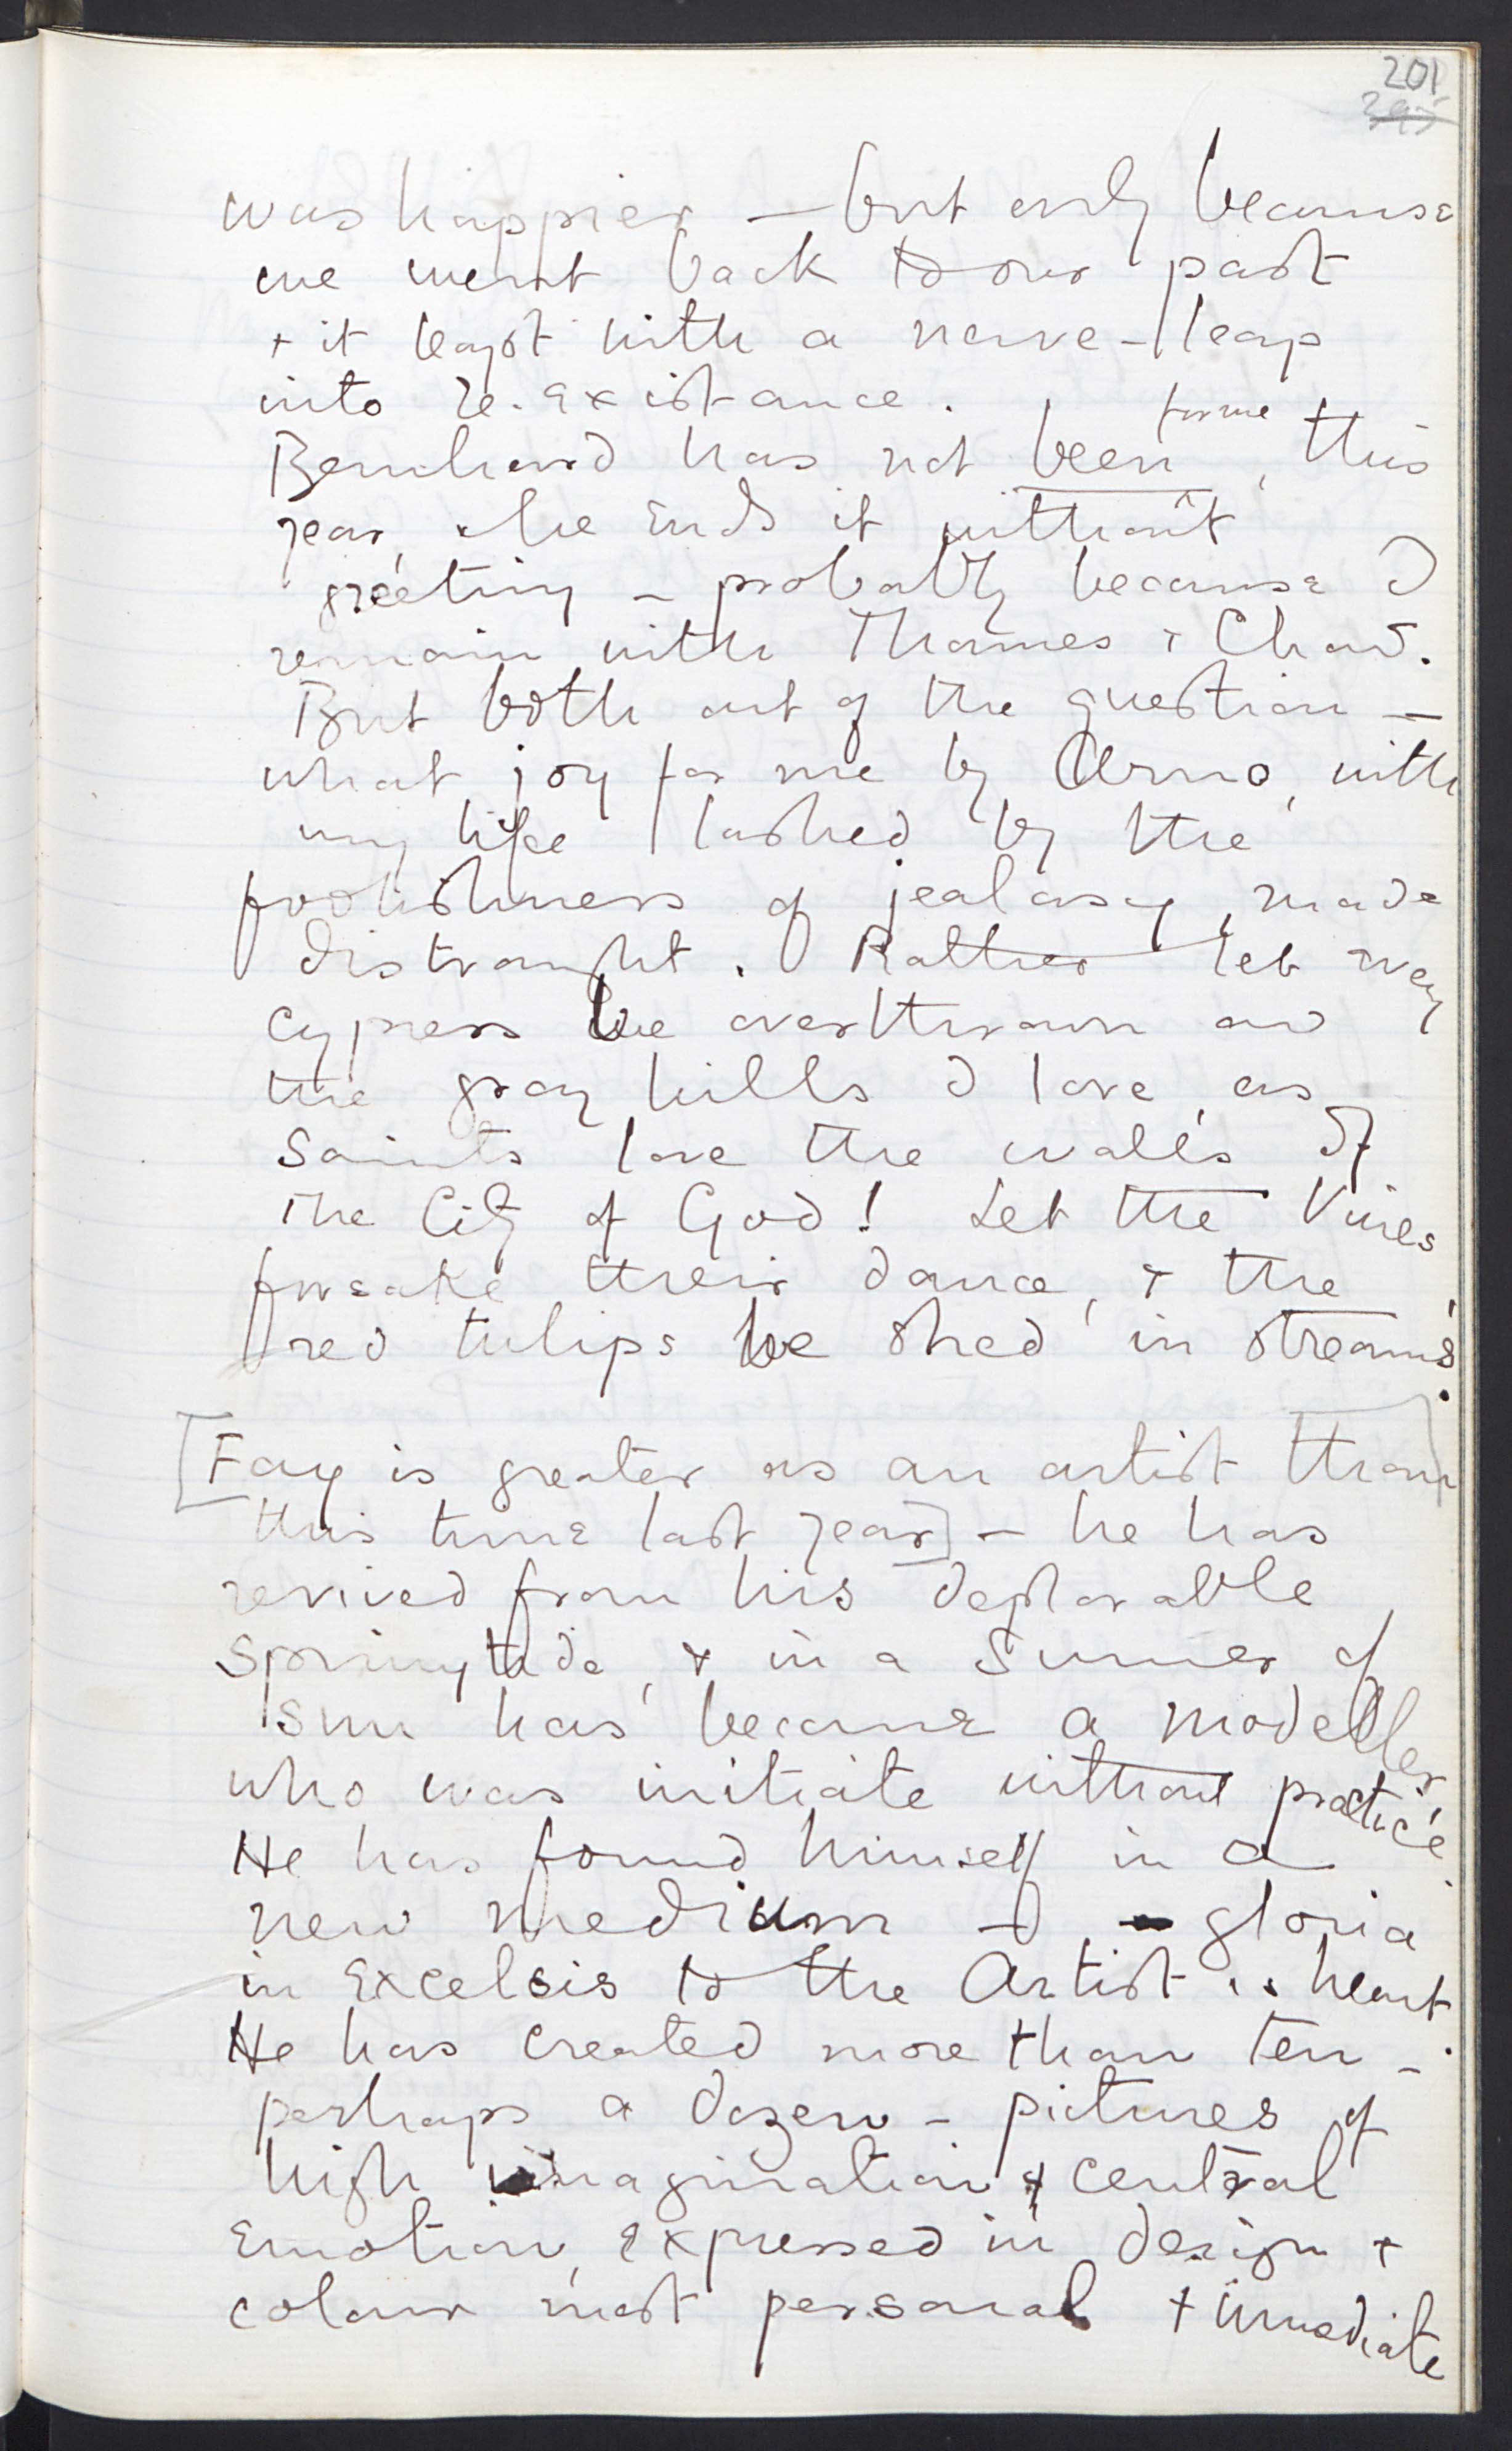 201
395
was happier — but only because
we went back to our past
+ it leapt with a nerve-leap
into re-existance.
Bernhard has not been for me, this
year, & he ends it without
greeting — probably because I
remain with Thames & Chad.
But both out of the question —
what joy for me by Arno, with
my life lashed by the
foolishness of jealousy, made
distraught. Rather let every
cypress be overthrown on
the gray hills I love, as
Saints love the walls of
the City of God! Let the Vines
forsake their dance, & the
red tulips be shed in streams.
[Fay is greater as an artist than
this time last year] — he has
revived from his deplorable
Springtide, & in a Summer of
sun has become a modeller
who was initiate without practice.
He has found himself in a
new medium — gloria
in Excelsis to the Artist's heart
He has created more than ten —
perhaps a dozen — pictures of
high imagination & central
Emotion, expressed in design +
colour most personal + immediate